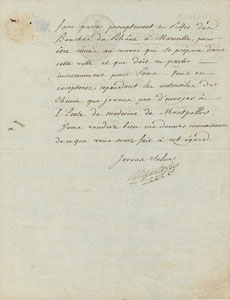 faire passer promptement au Préfet des
Bouches du Rhône à Marseille, pour
être remis au convoi qui se prépare dans
cette ville et qui doit en partir
incessamment pour Paris. Vous en
excepterez cependant les ustensiles de
Chimie que je vous prie d'envoyer à
l'École de médecine de Montpellier
Vous voudrez bien me donner connaissance
de ce que vous aurez fait à cet égard.
Je vous Salue